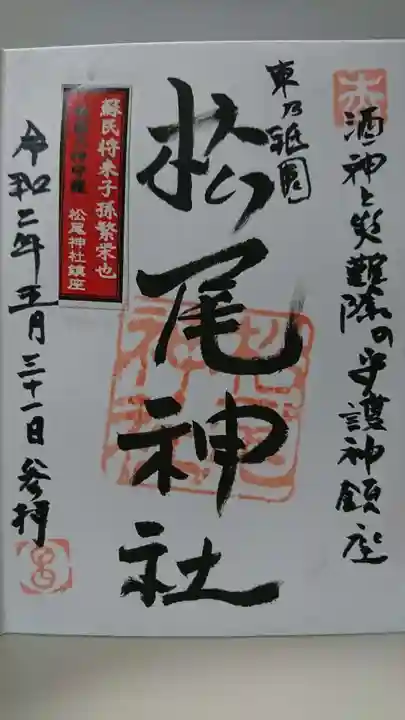 酒神と災難除の守護神鎮座
東乃祇園
松尾神社
蘇民将来子孫繁栄也
松尾神社鎮座
令和二年五月三十一日参拝
松尾神社